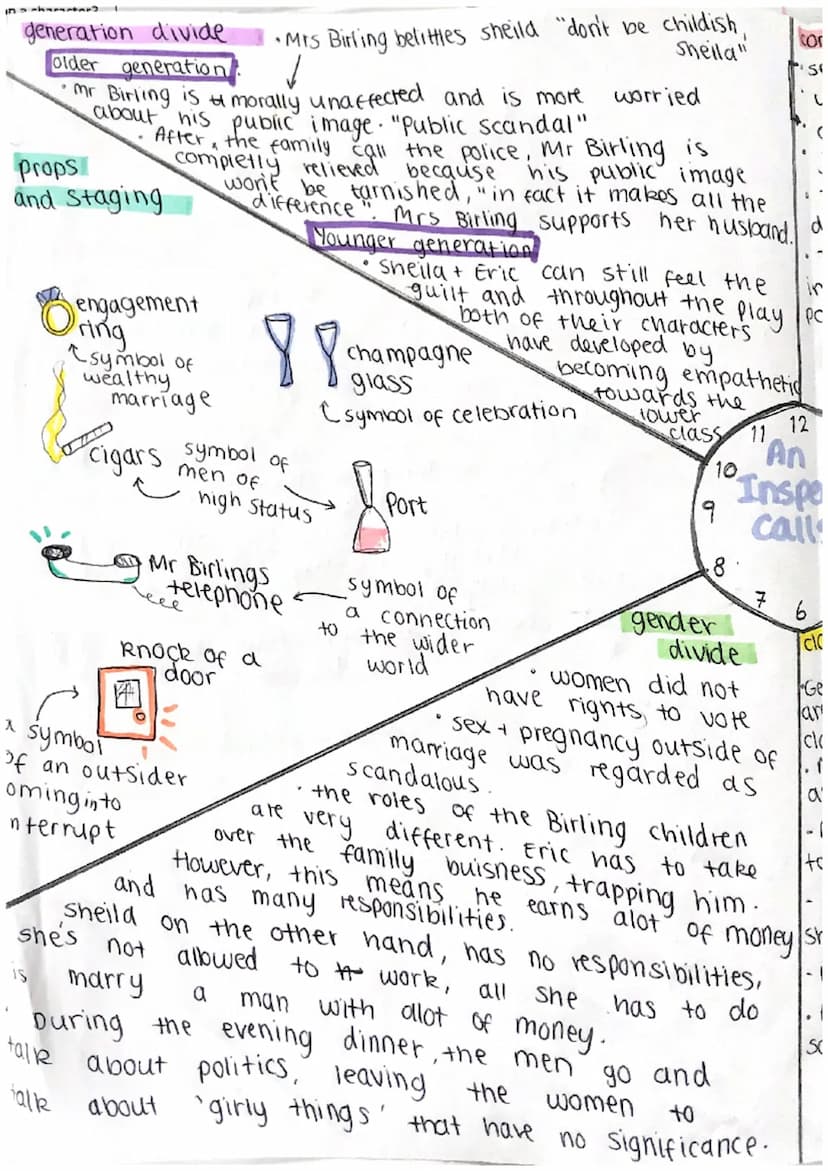 in a character?
generation divide
• Mrs Birling belittles sheila "don't be childish,
Sheila"
older generation:
• Mr Birling is morally unaffected and is more worried
about his public image. "Public scandal"
• After, the family call the police, Mr Birling is
completly relieved because his public image
won't be tarnished, "in fact it makes all the
difference". Mrs Birling supports her husband.
Younger generation
• Sheila + Eric can still feel the
guilt and throughout the play
both of their characters
have developed by
becoming empathetic
towards the
lower
class
props
and staging
engagement
ring
symbol of
wealthy
marriage
champagne
glass
symbol of celebration
cigars
symbol of
men of
high status
Port
Mr Birlings
telephone
symbol of
a connection
to the wider
world
knock of a
door
symbol
of an outsider
oming into
nterrupt
12
11
10
9
8
7
6
An
Inspe
Calls
gender
divide
• women did not
have rights to vote
• sex + pregnancy outside of
marriage was regarded as
scandalous.
• the roles of the Birling children
are very different. Eric has to take
over the family buisness, trapping him.
However, this means he earns alot of money
and has many responsibilities.
Sheila on the other hand, has no responsibilities,
she's not allowed to work, all she has to do
is marry a man with allot of money.
During the evening dinner, the men go and
talk about politics, leaving the women to
talk about 'girly things' that have no significance.